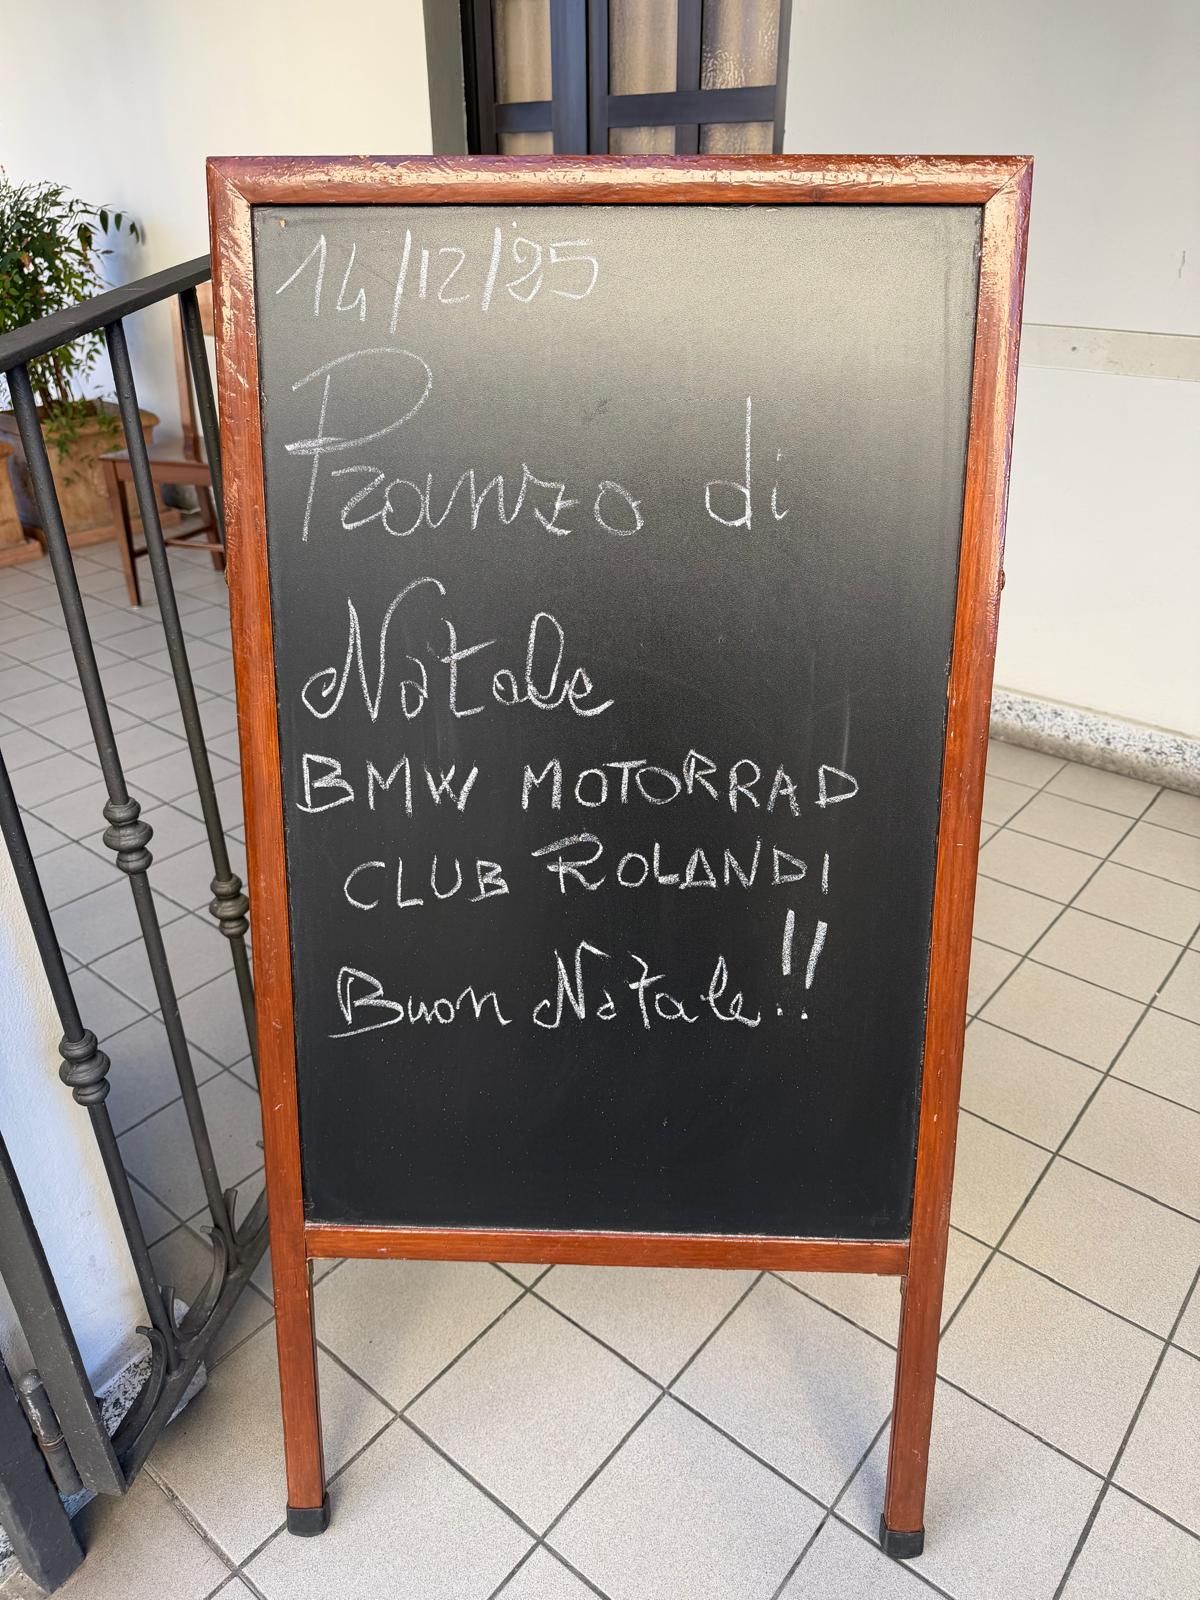 14/12/25
Pranzo di
Natale
BMW MOTORRAD
CLUB ROLANDI
Buon Natale!!